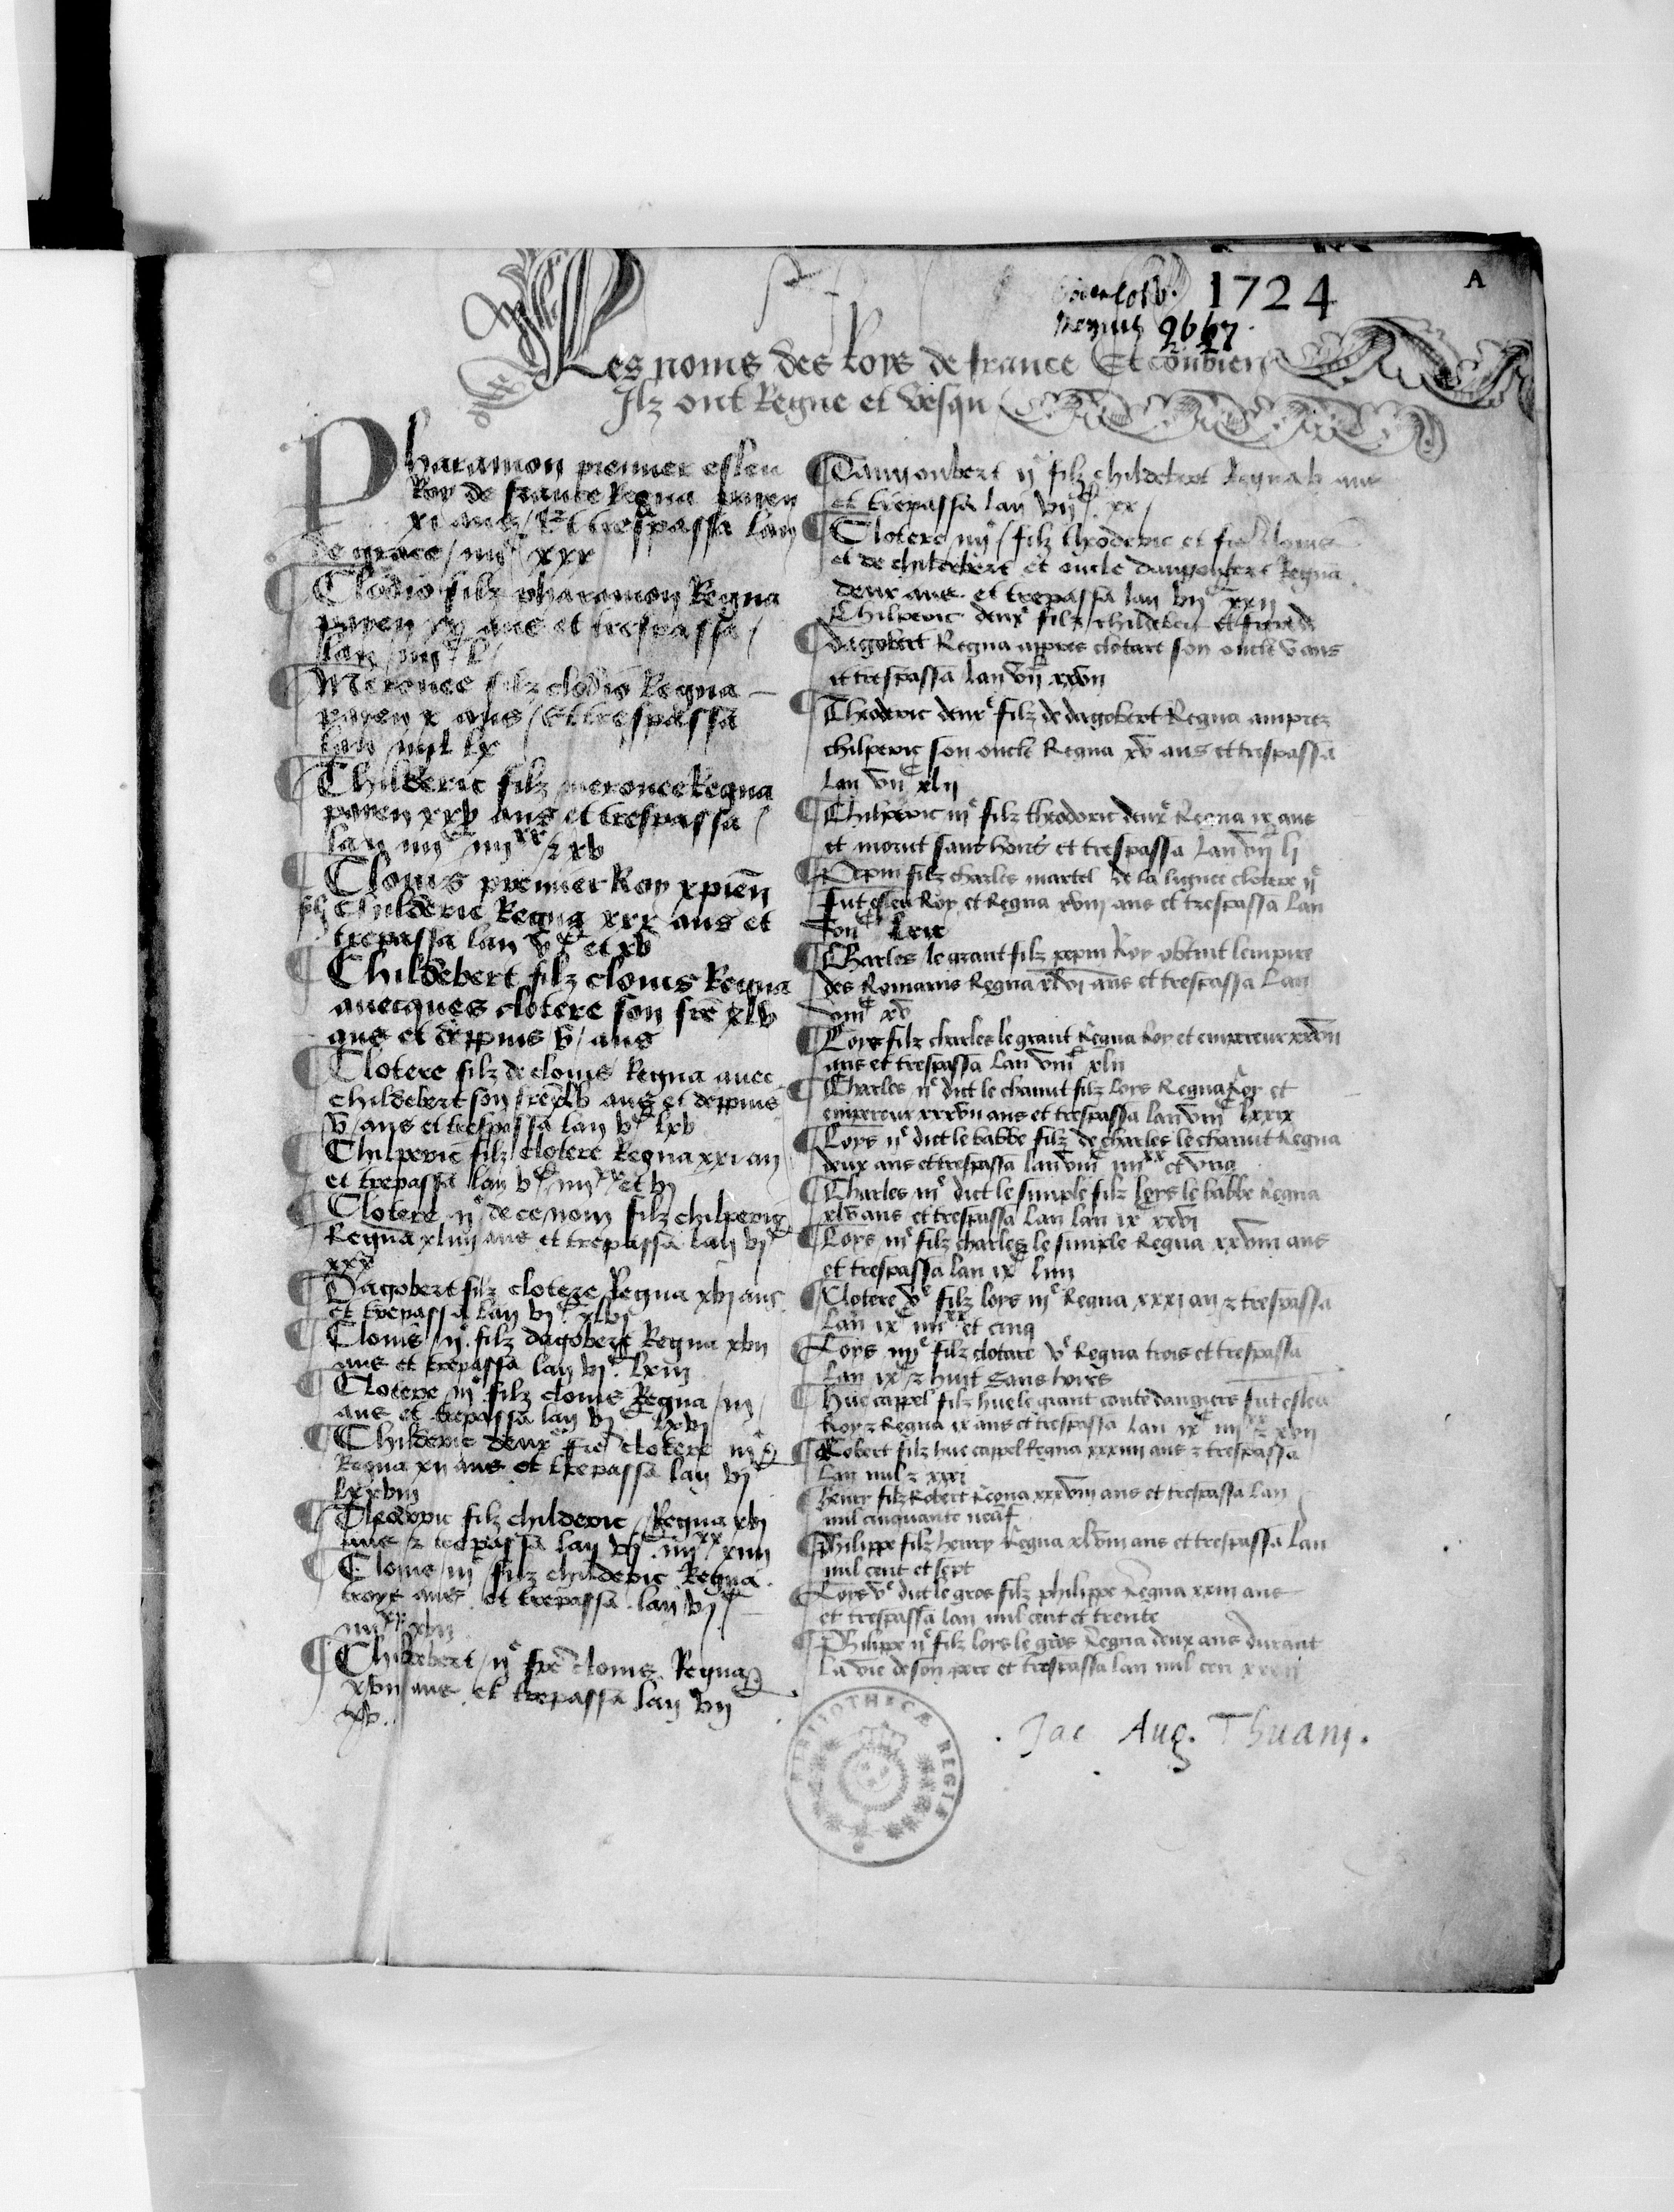 A
1724
Regius 9667.
Les noms des Roys de france Et combien
Ilz ont Regne et vesqu
Pharamon premier esleu
Roy de france Regna payen
xi ans / Et trespassa lan
de grace / iiiiᶜ xxx
¶ Clodio filz pharamon Regna
payen xx ans et trespassa /
lan / iiiiᶜ l /
¶ Merouee filz clodio Regna
payen x ans / Et trespassa
lan iiiiᶜ lx
¶ Childeric filz merouee Regna
payen xxv ans et trespassa /
lan iiiiᶜ iiiiˣˣ / ⁊ xv
¶ Clouis premier Roy xpien
filz childeric Regna xxx ans et
trepassa lan vᶜ et xv
¶ Childebert filz clouis Regna
auecques clotere son frē xlv
ans et deppuis / v / ans
¶ Clotere filz de clouis Regna auec
childebert son frē xlv ans et deppuis
v / ans et trespassa lan vᶜ lxv
¶ Chilperic filz clotere Regna xxi an
et trepassa lan vᶜ / iiiiˣˣ et vj
¶ Clotere ijᵉ de ce nom filz chilperic
Regna xliiii ans et trepassa lan vjᶜ
xxx
¶ Dagobert filz clotere Regna xvj ans
et trepassa lan vjᶜ xlvj
¶ Clouis / ijᵉ filz dagobert Regna xvij
ans et trepassa lan vjᶜ lxiij
¶ Clotere / iijᵉ filz clouis Regna / iij /
ans et trepassa lan vjᶜ lxvj
¶ Childeric deuxᵉ frē clotere iijᵉ
Regna xij ans et trepassa lan vjᶜ
lxxviij
¶ Theodoric filz childeric Regna xvj
ans ⁊ trepassa lan vjᶜ iiiiˣˣ xiiij
¶ Clouis / iijᵉ filz childeric Regna
troys ans et trepassa lan vjᶜ
iiiiˣˣ xvij
¶ Childebert / ijᵉ frē clouis Regna
xvij ans et trepassa lan vij
xv.
¶ Dangoubert ijᵉ filz childebert Regna v ans
et trepassa lan vijᶜ xx /
¶ Clotere / iiijᵉ / filz theoderic et frē clouis
et de childebert et oncle dangoubert Regna
deux ans et trepassa lan vijᶜ xxij
Chilperic deuxᵉ filz childebert et frere de
¶ dagobert Regna appres clotare son oncle v ans
et trespassa lan vijᶜ xxvij
¶ Theoderic deuxᵉ filz de dagobert Regna amprez
chilperic son oncle Regna xv ans et trespassa
lan vijᶜ xlij
¶ Chilperic iijᵉ filz theodoric deuxᵉ Regna ix ans
et morut sans hoirs et trespassa Lan vijᶜ lj
¶ Pepin filz charles martel de la lignee clotere ijᵉ
fut esleu Roy et Regna xviij ans et trespassa Lan
vijᶜ lxix
¶ Charles / le grant filz pepin Roy obtint lempire
des Romains Regna xlvj ans et trespassa Lan
viijᶜ xv
¶ Loys filz charles le grant Regna Roy et empereur xxvij
ans et trespassa Lan viijᶜ xlij
¶ Charles ijᵉ dict le chauut filz loys Regna Roy et
empereur xxxvij ans et trespassa lan viijᶜ lxxix
¶ Loys ijᵉ dict le babbe filz de charles le chauut Regna
deux ans et trespassa lan viijᶜ iiiiˣˣ et vng
¶ Charles iijᵉ dict le simple filz loys le babbe Regna
xlv ans et trespassa Lan lan ixᶜ xxvj
¶ Loys / iijᵉ filz charles le simple Regna xxviij ans
et trespassa lan ixᶜ liiij
¶ Clotere vᵉ filz loys iijᵉ Regna xxxj an ⁊ trespassa
Lan ixᶜ iiiiˣˣ et cinq
¶ Loys iiijᵉ filz clotare vᵉ Regna trois et trespassa
Lan ixᶜ ⁊ huit Sans hoirs
¶ Hue cappel filz hue le grant conte dangiers fut esleu
Roy ⁊ Regna ix ans et trespassa Lan ixᶜ iiiiˣˣ ⁊ xvij
¶ Robert filz hue cappel Regna xxxiiij ans ⁊ trespassa
Lan mil ⁊ xxxi
¶ Henry filz Robert Regna xxxviij ans et trespassa Lan
mil cinquante neuf
¶ Philippe filz henry Regna xlviij ans et trespassa Lan
mil cent et sept
¶ Loys vᵉ dict le gros filz philippe Regna xxiij ans
et trespassa lan mil cent et trente
¶ Philippe ijᵉ filz loys le gros Regna deux ans durant
La vie de son pere et trespassa lan mil cen xxxij
BIBLIOTHECÆ REGIÆ
Jac. Aug. Thuani.